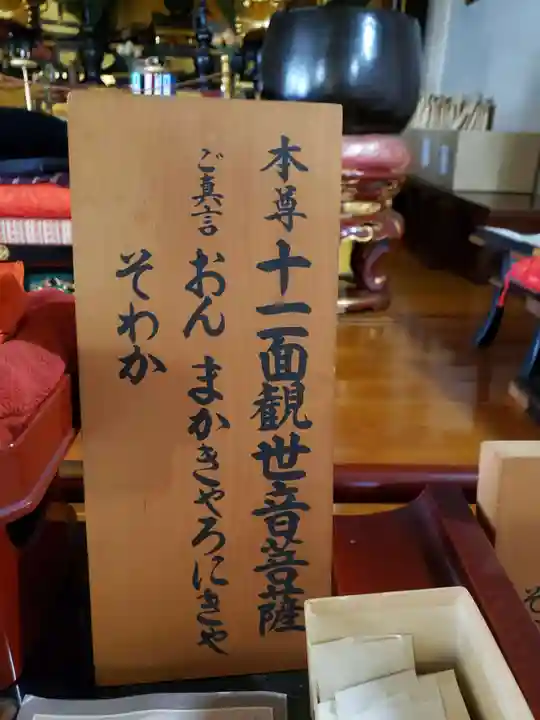 本尊 十一面観世音菩薩
ご真言 おん まかきゃろにきゃ
そわか
そ